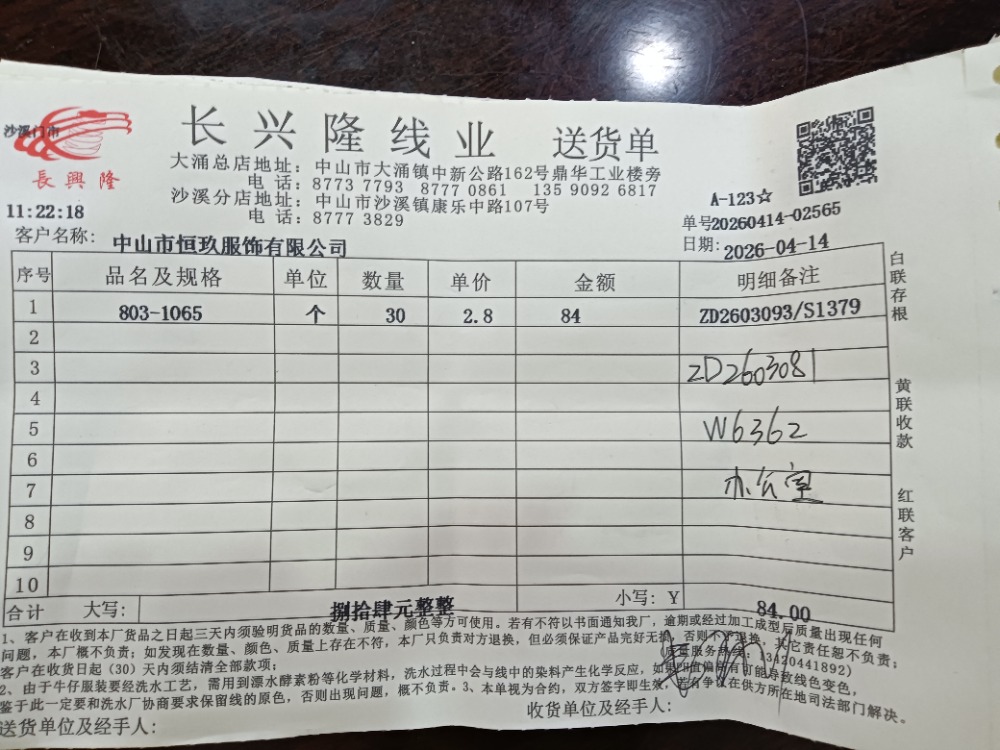 沙溪门市
長興隆
长兴隆线业 送货单
大涌总店地址：中山市大涌镇中新公路162号鼎华工业楼旁
电话：8773 7793 8777 0861 135 9092 6817
沙溪分店地址：中山市沙溪镇康乐中路107号
电话：8777 3829
A-123☆
11:22:18
单号20260414-02565
客户名称：中山市恒玖服饰有限公司
日期：2026-04-14
序号 品名及规格 单位 数量 单价 金额 明细备注
1 803-1065 个 30 2.8 84 ZD2603093/S1379
2
3 ZD2603081
4
5 W6362
6
7 办公室
8
9
10
合计 大写：捌拾肆元整整 小写：Y 84.00
白联存根 黄联收款 红联客户
1、客户在收到本厂货品之日起三天内须验明货品的数量、质量、颜色等方可使用。若有不符以书面通知我厂，逾期或经过加工成型后质量出现任何
问题，本厂概不负责；如发现在数量、颜色、质量上存在不符，本厂只负责对方退换，但必须保证产品完好无损，否则不予退换，其它责任恕不负责；
客户在收货日起（30）天内须结清全部款项； 质量服务热线：13420441892）
2、由于牛仔服装要经洗水工艺，需用到漂水酵素粉等化学材料，洗水过程中会与线中的染料产生化学反应，如果四值偏高有可能导致线色变色，
鉴于此一定要和洗水厂协商要求保留线的原色，否则出现问题，概不负责。3、本单视为合约，双方签字即生效，若有争议在供方所在地司法部门解决。
送货单位及经手人： 收货单位及经手人：